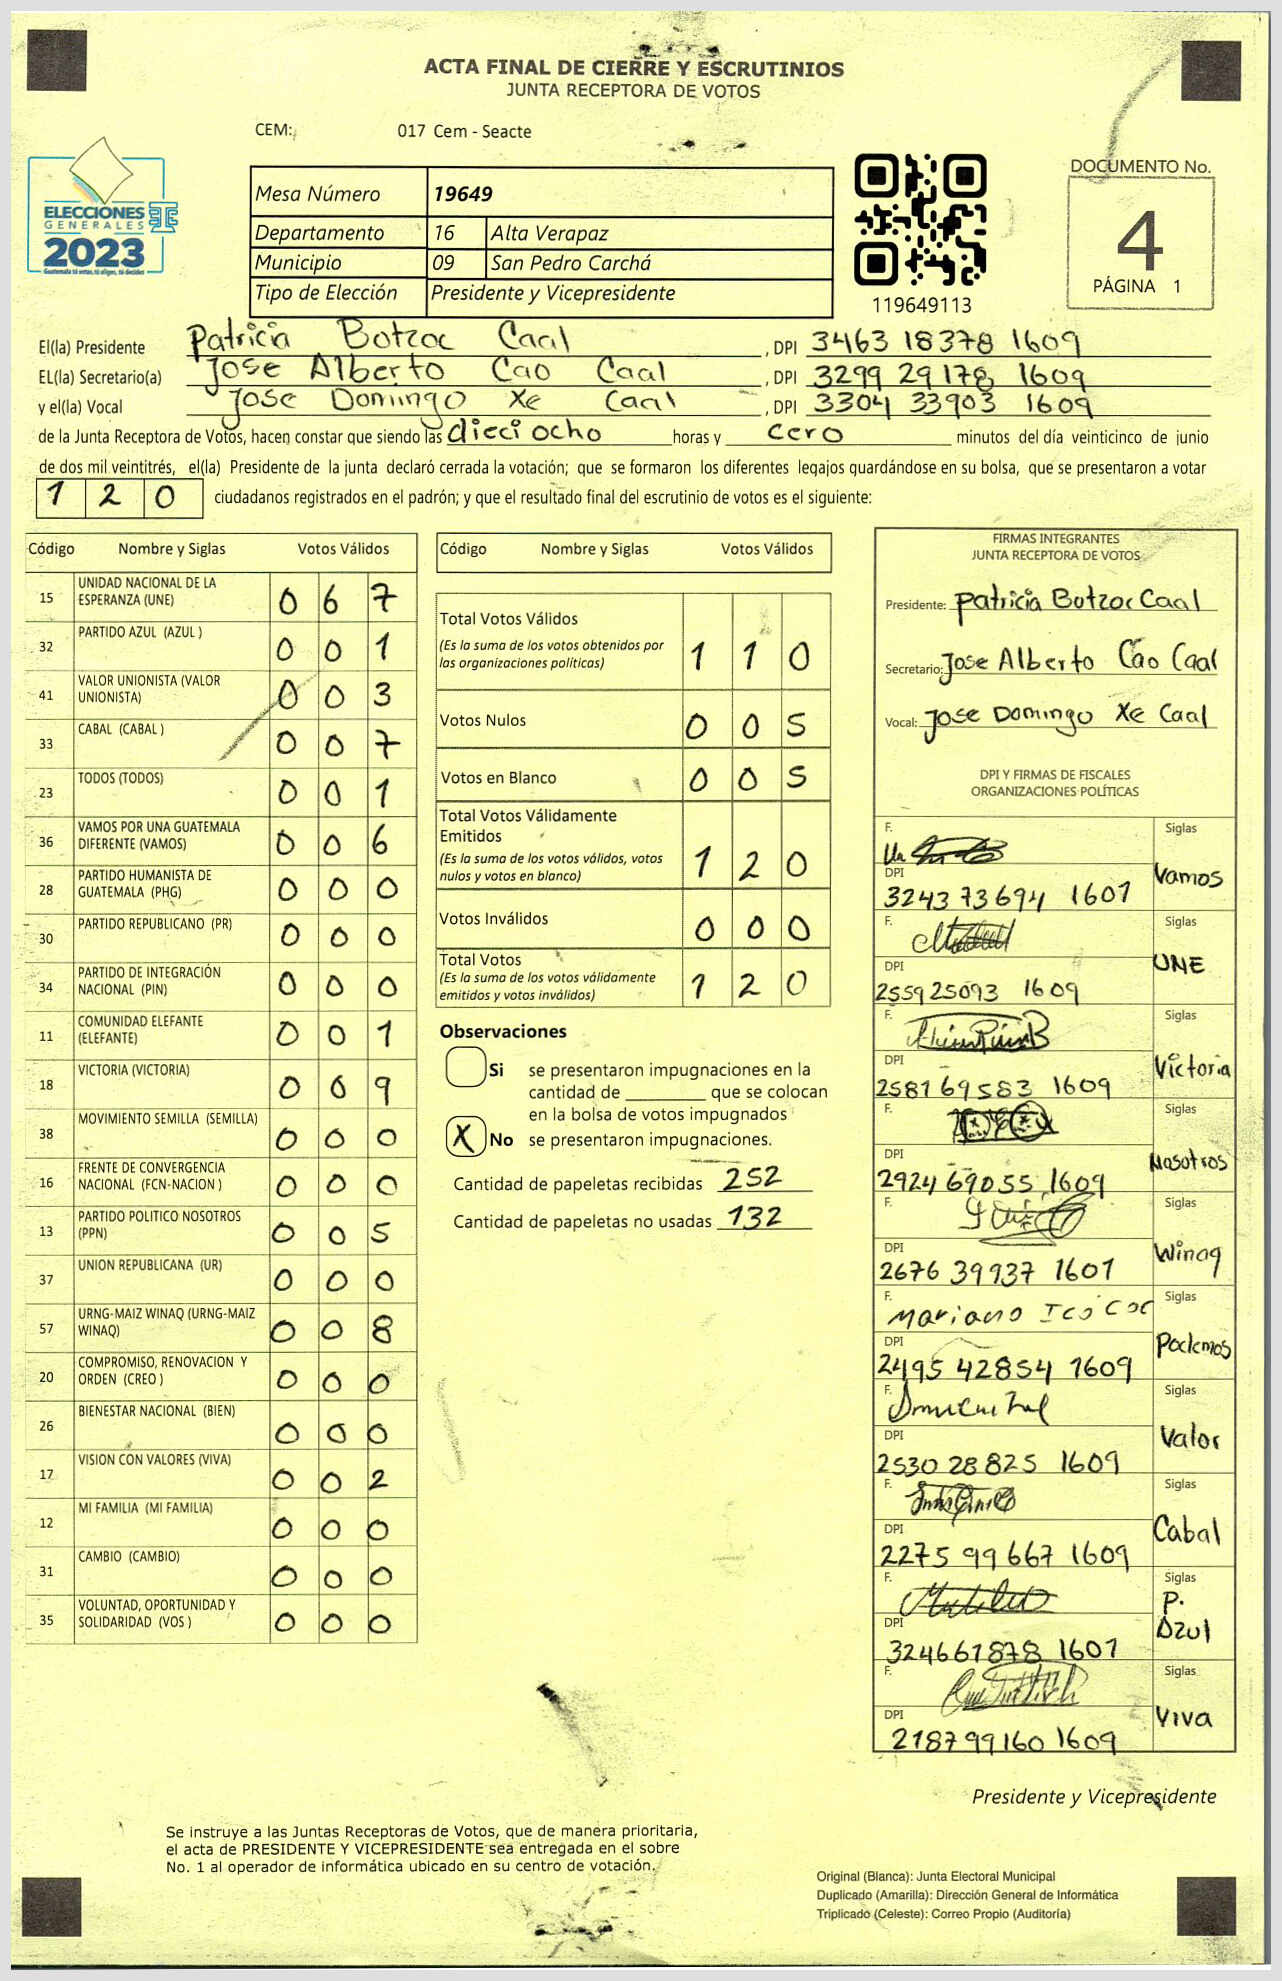 ACTA FINAL DE CIERRE Y ESCRUTINIOS
JUNTA RECEPTORA DE VOTOS
CEM: 017 Cem - Seacte
ELECCIONES
GENERALES
2023
Guatemala tú votas, tú eliges, tú decides
Mesa Número 19649
Departamento 16 Alta Verapaz
Municipio 09 San Pedro Carchá
Tipo de Elección Presidente y Vicepresidente
119649113
DOCUMENTO No.
4
PÁGINA 1
El(la) Presidente Patricia Botzoc Caal , DPI 3463 18378 1609
EL(la) Secretario(a) Jose Alberto Cao Caal , DPI 3299 29178 1609
y el(la) Vocal Jose Domingo Xe Caal , DPI 3304 33903 1609
de la Junta Receptora de Votos, hacen constar que siendo las dieciocho horas y cero minutos del día veinticinco de junio
de dos mil veintitrés, el(la) Presidente de la junta declaró cerrada la votación; que se formaron los diferentes legajos guardándose en su bolsa, que se presentaron a votar
1 2 0 ciudadanos registrados en el padrón; y que el resultado final del escrutinio de votos es el siguiente:
Código Nombre y Siglas Votos Válidos
15 UNIDAD NACIONAL DE LA ESPERANZA (UNE) 0 6 7
32 PARTIDO AZUL (AZUL ) 0 0 1
41 VALOR UNIONISTA (VALOR UNIONISTA) 0 0 3
33 CABAL (CABAL ) 0 0 7
23 TODOS (TODOS) 0 0 1
36 VAMOS POR UNA GUATEMALA DIFERENTE (VAMOS) 0 0 6
28 PARTIDO HUMANISTA DE GUATEMALA (PHG) 0 0 0
30 PARTIDO REPUBLICANO (PR) 0 0 0
34 PARTIDO DE INTEGRACIÓN NACIONAL (PIN) 0 0 0
11 COMUNIDAD ELEFANTE (ELEFANTE) 0 0 1
18 VICTORIA (VICTORIA) 0 0 9
38 MOVIMIENTO SEMILLA (SEMILLA) 0 0 0
16 FRENTE DE CONVERGENCIA NACIONAL (FCN-NACION ) 0 0 0
13 PARTIDO POLITICO NOSOTROS (PPN) 0 0 5
37 UNION REPUBLICANA (UR) 0 0 0
57 URNG-MAIZ WINAQ (URNG-MAIZ WINAQ) 0 0 8
20 COMPROMISO, RENOVACION Y ORDEN (CREO ) 0 0 0
26 BIENESTAR NACIONAL (BIEN) 0 0 0
17 VISION CON VALORES (VIVA) 0 0 2
12 MI FAMILIA (MI FAMILIA) 0 0 0
31 CAMBIO (CAMBIO) 0 0 0
35 VOLUNTAD, OPORTUNIDAD Y SOLIDARIDAD (VOS ) 0 0 0
Código Nombre y Siglas Votos Válidos
Total Votos Válidos
(Es la suma de los votos obtenidos por
las organizaciones políticas) 1 1 0
Votos Nulos 0 0 5
Votos en Blanco 0 0 5
Total Votos Válidamente
Emitidos
(Es la suma de los votos válidos, votos
nulos y votos en blanco) 1 2 0
Votos Inválidos 0 0 0
Total Votos
(Es la suma de los votos válidamente
emitidos y votos inválidos) 1 2 0
Observaciones
Si se presentaron impugnaciones en la
cantidad de que se colocan
en la bolsa de votos impugnados
X No se presentaron impugnaciones.
Cantidad de papeletas recibidas 252
Cantidad de papeletas no usadas 132
FIRMAS INTEGRANTES
JUNTA RECEPTORA DE VOTOS
Presidente: Patricia Botzoc Caal
Secretario: Jose Alberto Cao Caal
Vocal: Jose Domingo Xe Caal
DPI Y FIRMAS DE FISCALES
ORGANIZACIONES POLÍTICAS
F. Siglas
DPI Vamos
3243 73694 1601
F. Siglas
DPI UNE
2559 25093 1609
F. Siglas
DPI Victoria
2581 69583 1609
F. Siglas
DPI Nosotros
2924 69055 1609
F. Siglas
DPI Winaq
2676 39937 1601
F. Mariano Ico Coc Siglas
DPI Podemos
2495 42854 1609
F. Siglas
DPI Valor
2530 28825 1609
F. Siglas
DPI Cabal
2275 99667 1609
F. Siglas
DPI P. Azul
324661878 1601
F. Siglas
DPI Viva
2187 99160 1609
Presidente y Vicepresidente
Se instruye a las Juntas Receptoras de Votos, que de manera prioritaria,
el acta de PRESIDENTE Y VICEPRESIDENTE sea entregada en el sobre
No. 1 al operador de informática ubicado en su centro de votación.
Original (Blanca): Junta Electoral Municipal
Duplicado (Amarilla): Dirección General de Informática
Triplicado (Celeste): Correo Propio (Auditoría)